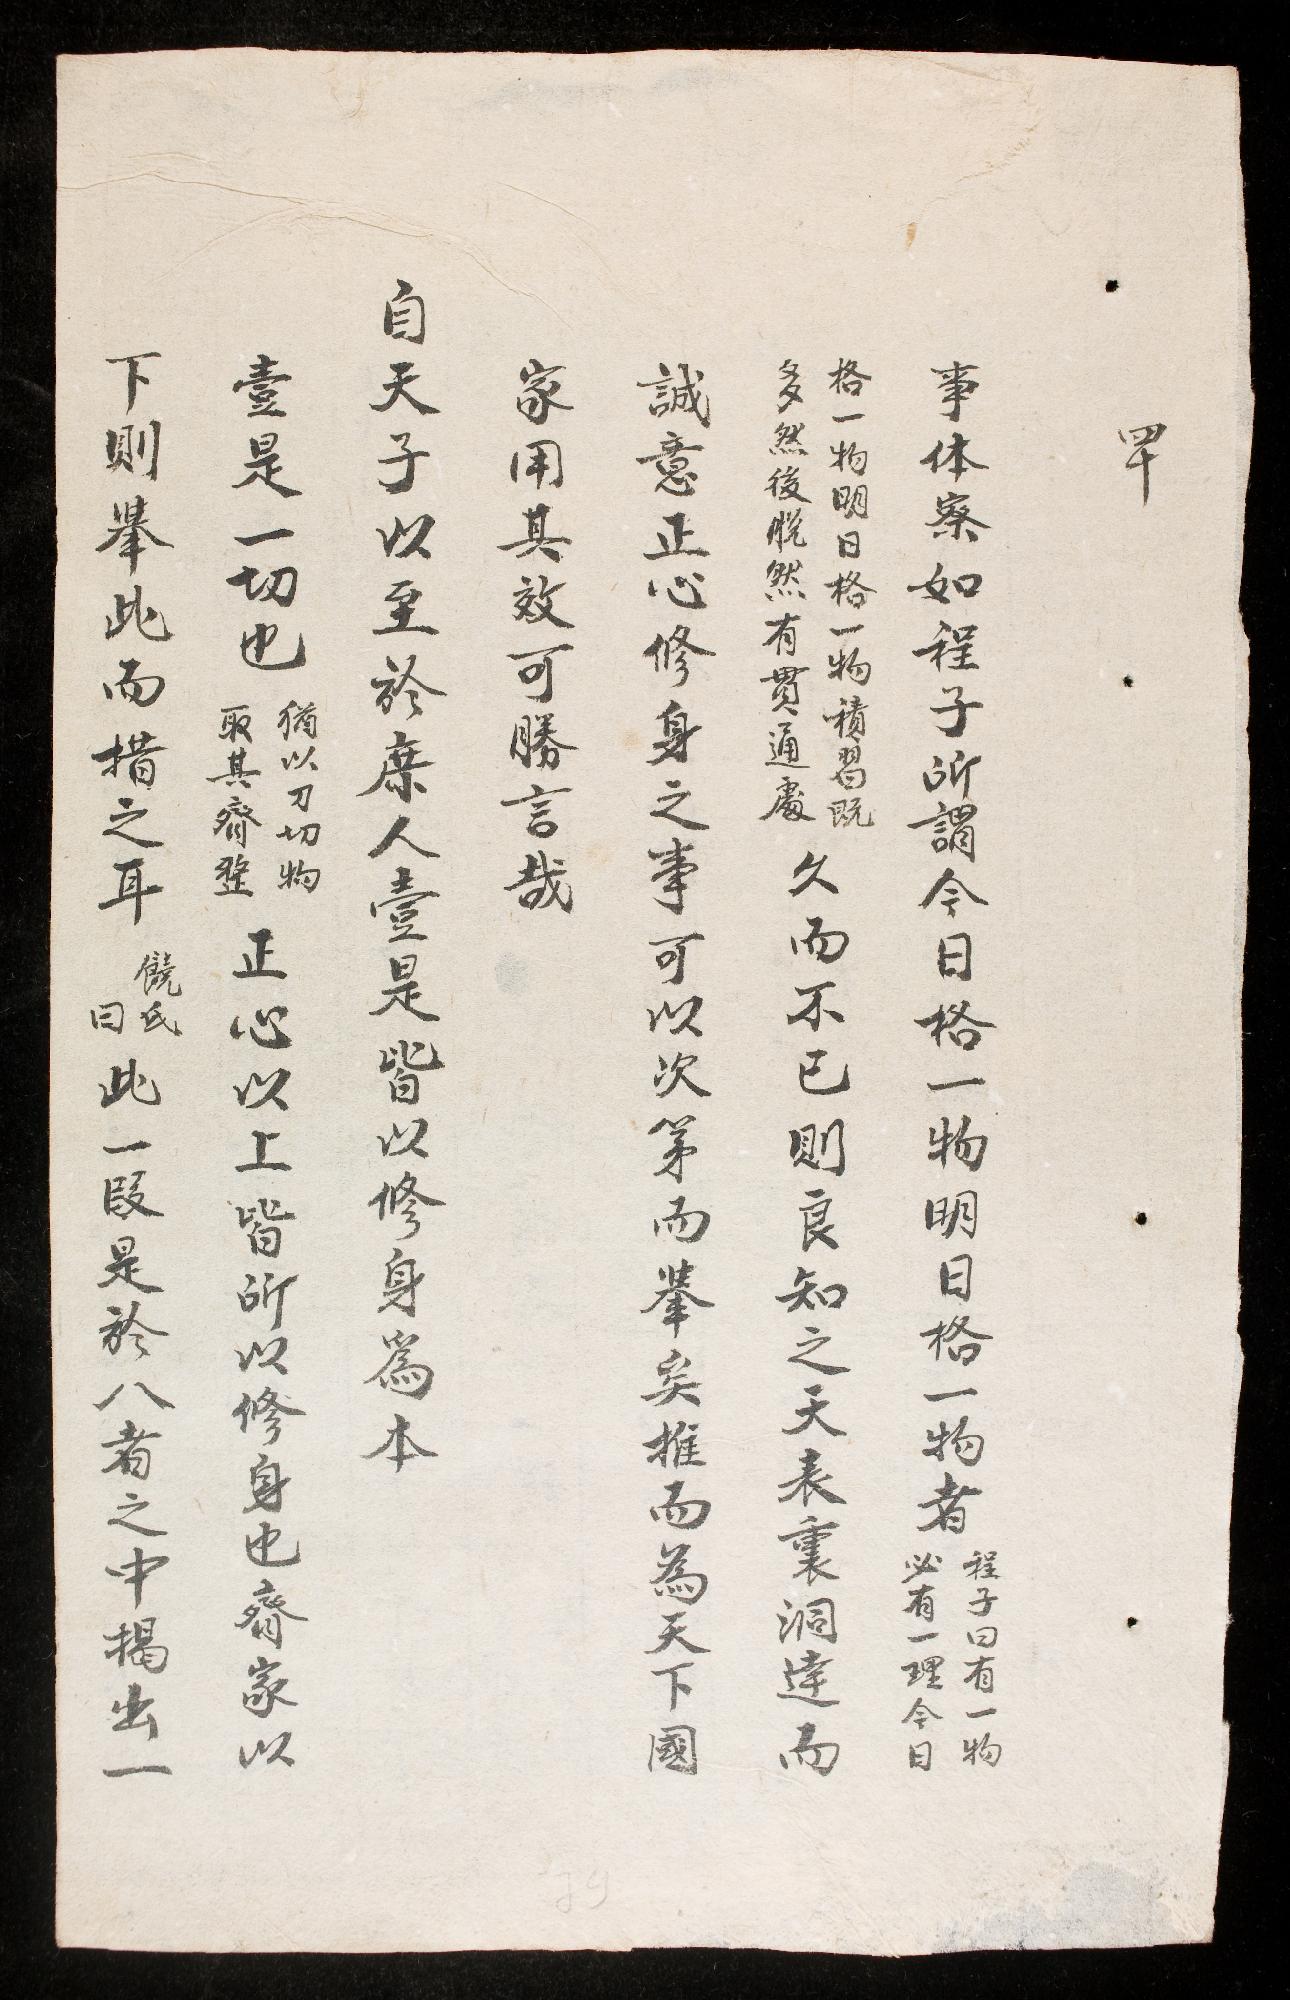 四十
事体察如程子所謂今日格一物明日格一物者程子曰有一物必有一理今日
格一物明日格一物積習既多然後脱然有貫通處久而不已則良知之天表裏洞達而
誠意正心修身之事可以次第而擧矣推而為天下國
家用其效可勝言哉
自天子以至於庶人壹是皆以修身爲本
壹是一切也猶以刀切物取其齊整正心以上皆所以修身也齊家以
下則擧此而措之耳饒氏曰此一段是於八者之中揭出一